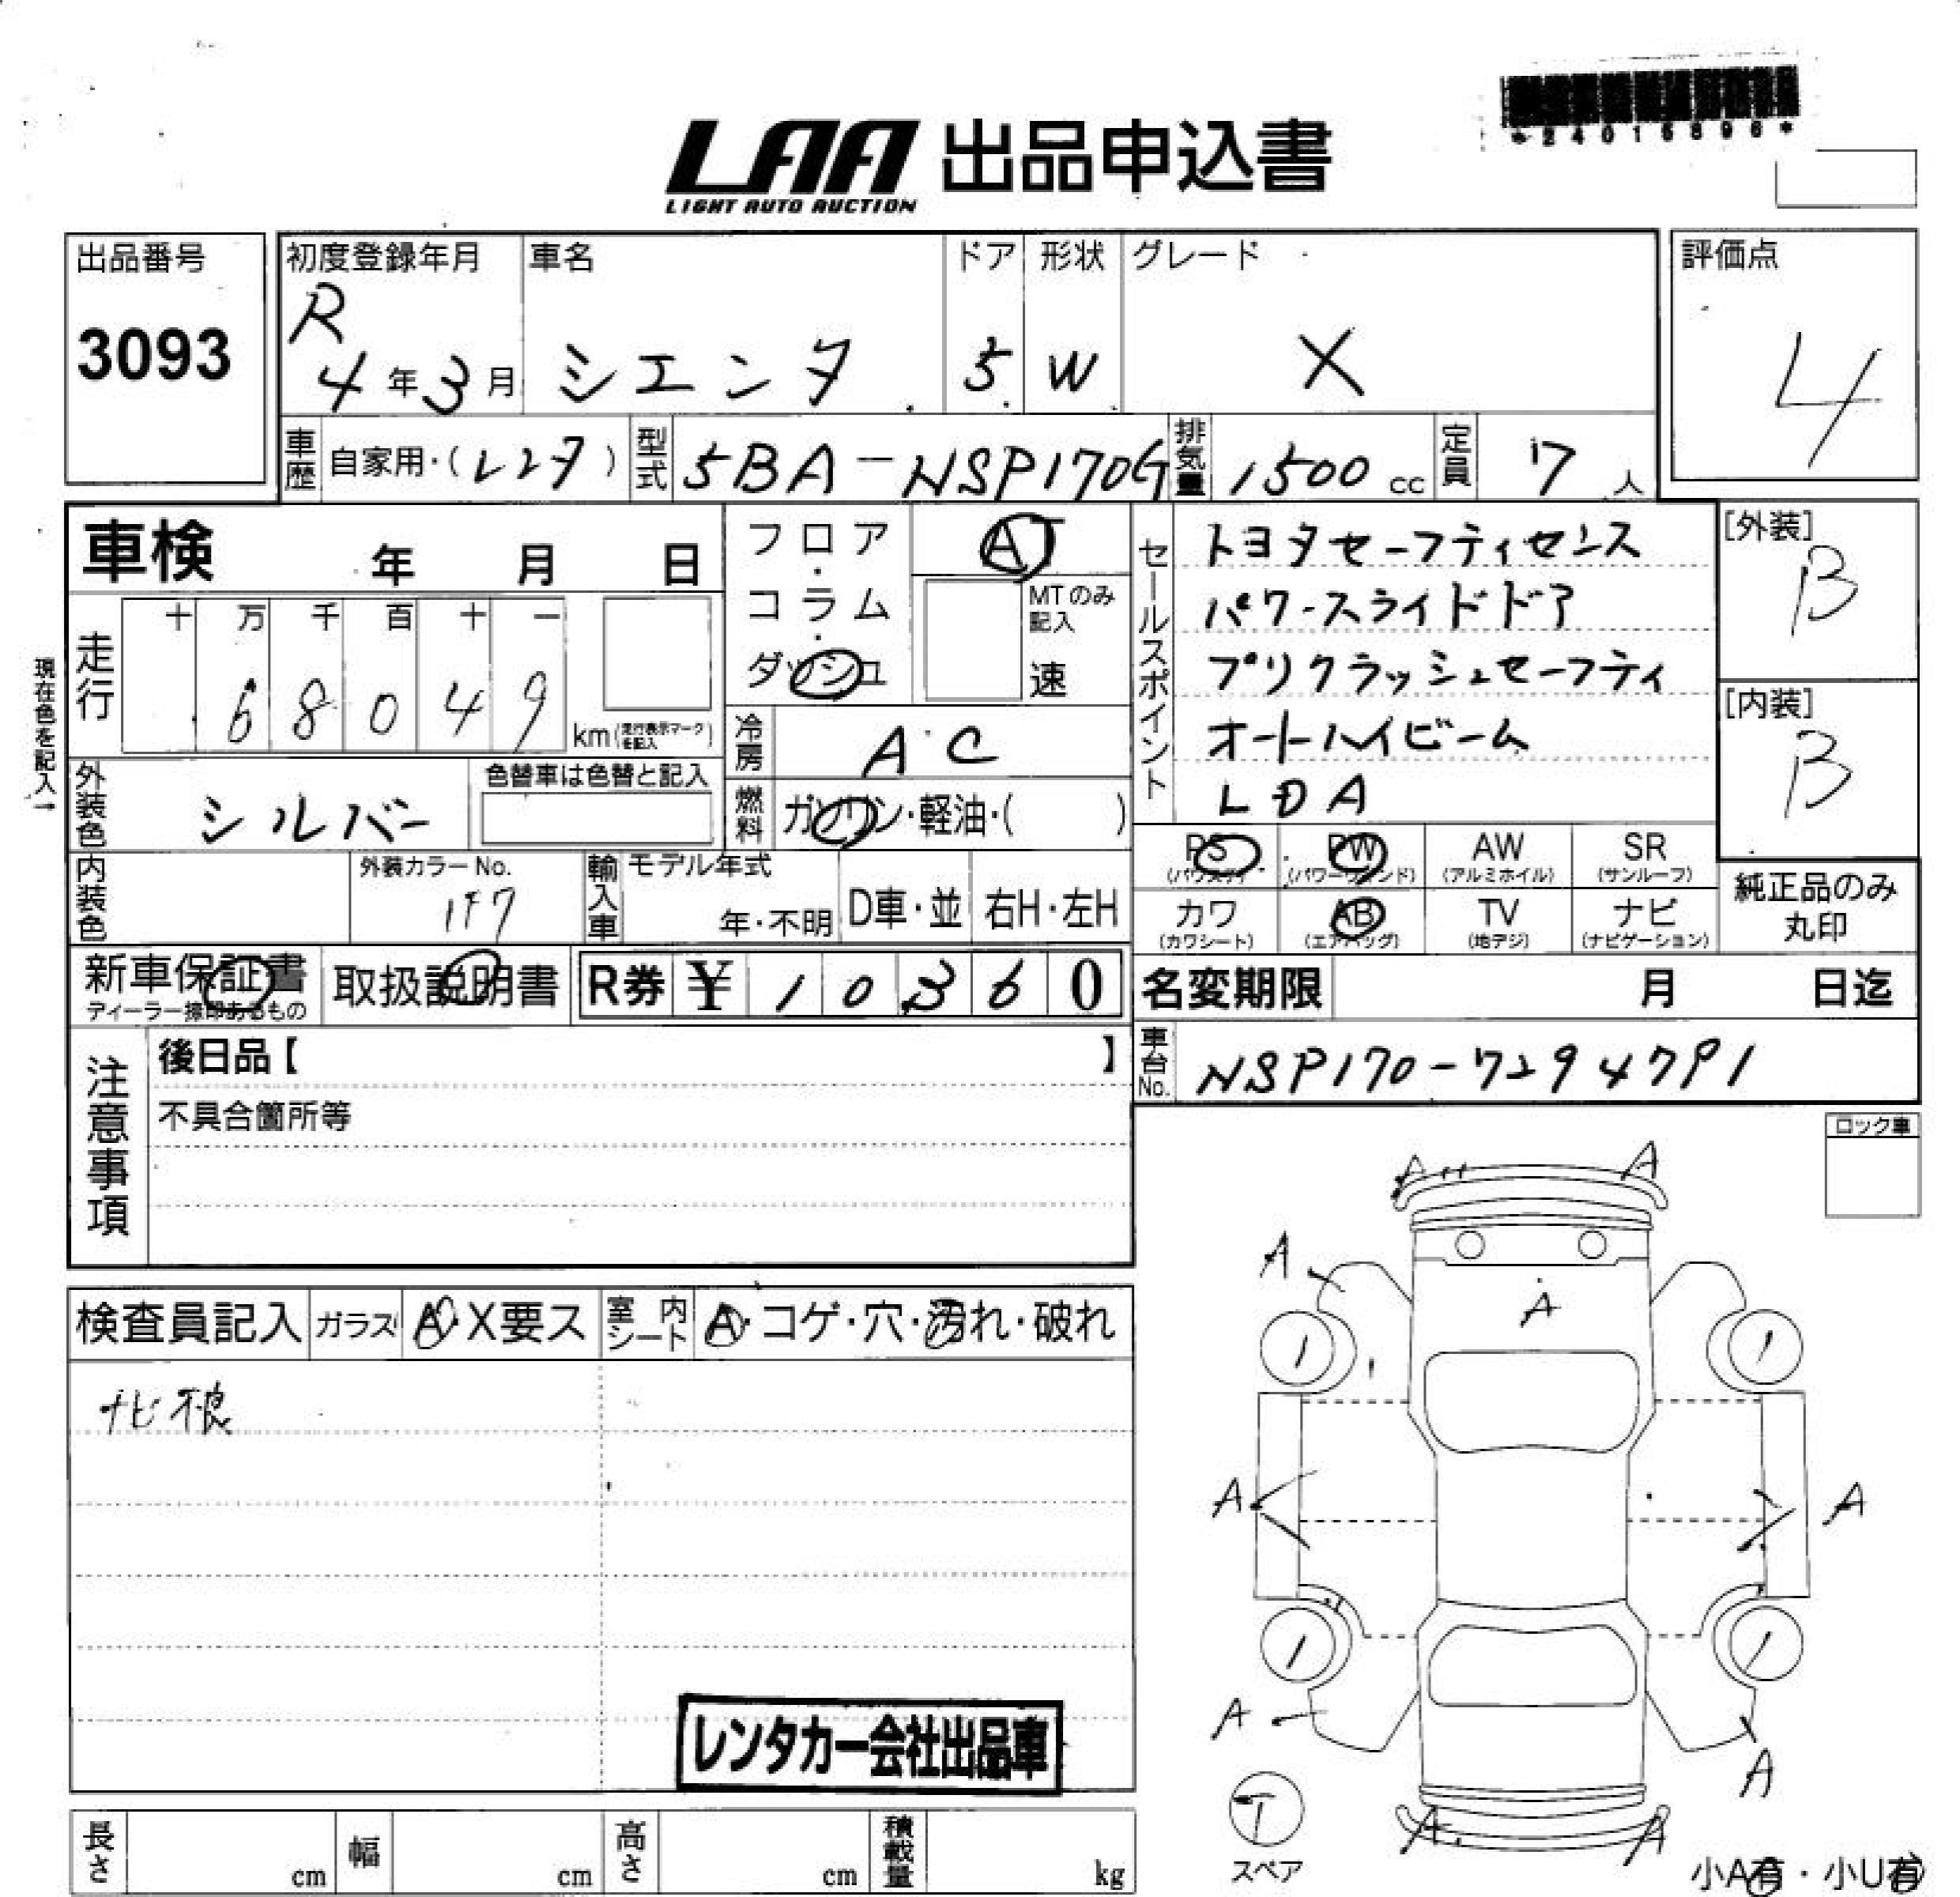 *24015896*
LAA 出品申込書
LIGHT AUTO AUCTION
出品番号
3093
初度登録年月
R
4年3月
車名
シエンタ
ドア
5
形状
W
グレード
X
評価点
4
車歴 自家用・(レンタ)
型式 5BA-NSP170G
排気量 1500cc
定員 7人
車検 年 月 日
現在色を記入→
走行
十 万 千 百 十 一
6 8 0 4 9
km(走行表示マークを記入)
フロア・コラム・ダッシュ
AT
MTのみ記入
速
冷房 AC
燃料 ガソリン・軽油・( )
セールスポイント
トヨタセーフティセンス
パワースライドドア
プリクラッシュセーフティ
オートハイビーム
LDA
[外装]
B
[内装]
B
外装色 シルバー
色替車は色替と記入
内装色
外装カラーNo.
1F7
輸入車
モデル年式
年・不明
D車・並
右H・左H
PS
(パワステ)
PW
(パワーウィンド)
AW
(アルミホイル)
SR
(サンルーフ)
カワ
(カワシート)
AB
(エアバッグ)
TV
(地デジ)
ナビ
(ナビゲーション)
純正品のみ
丸印
新車保証書
ディーラー捺印あるもの
取扱説明書
R券 ¥ 10360
名変期限 月 日迄
注意事項
後日品【 】
不具合箇所等
車台No. NSP170-7294791
ロック車
検査員記入
ガラス A・X要ス
室内シート A・コゲ・穴・汚れ・破れ
ナビ不良
レンタカー会社出品車
長さ cm
幅 cm
高さ cm
積載量 kg
A A
A
A
1 1
A A
1 1
A A
T
スペア
A A
小A有・小U有